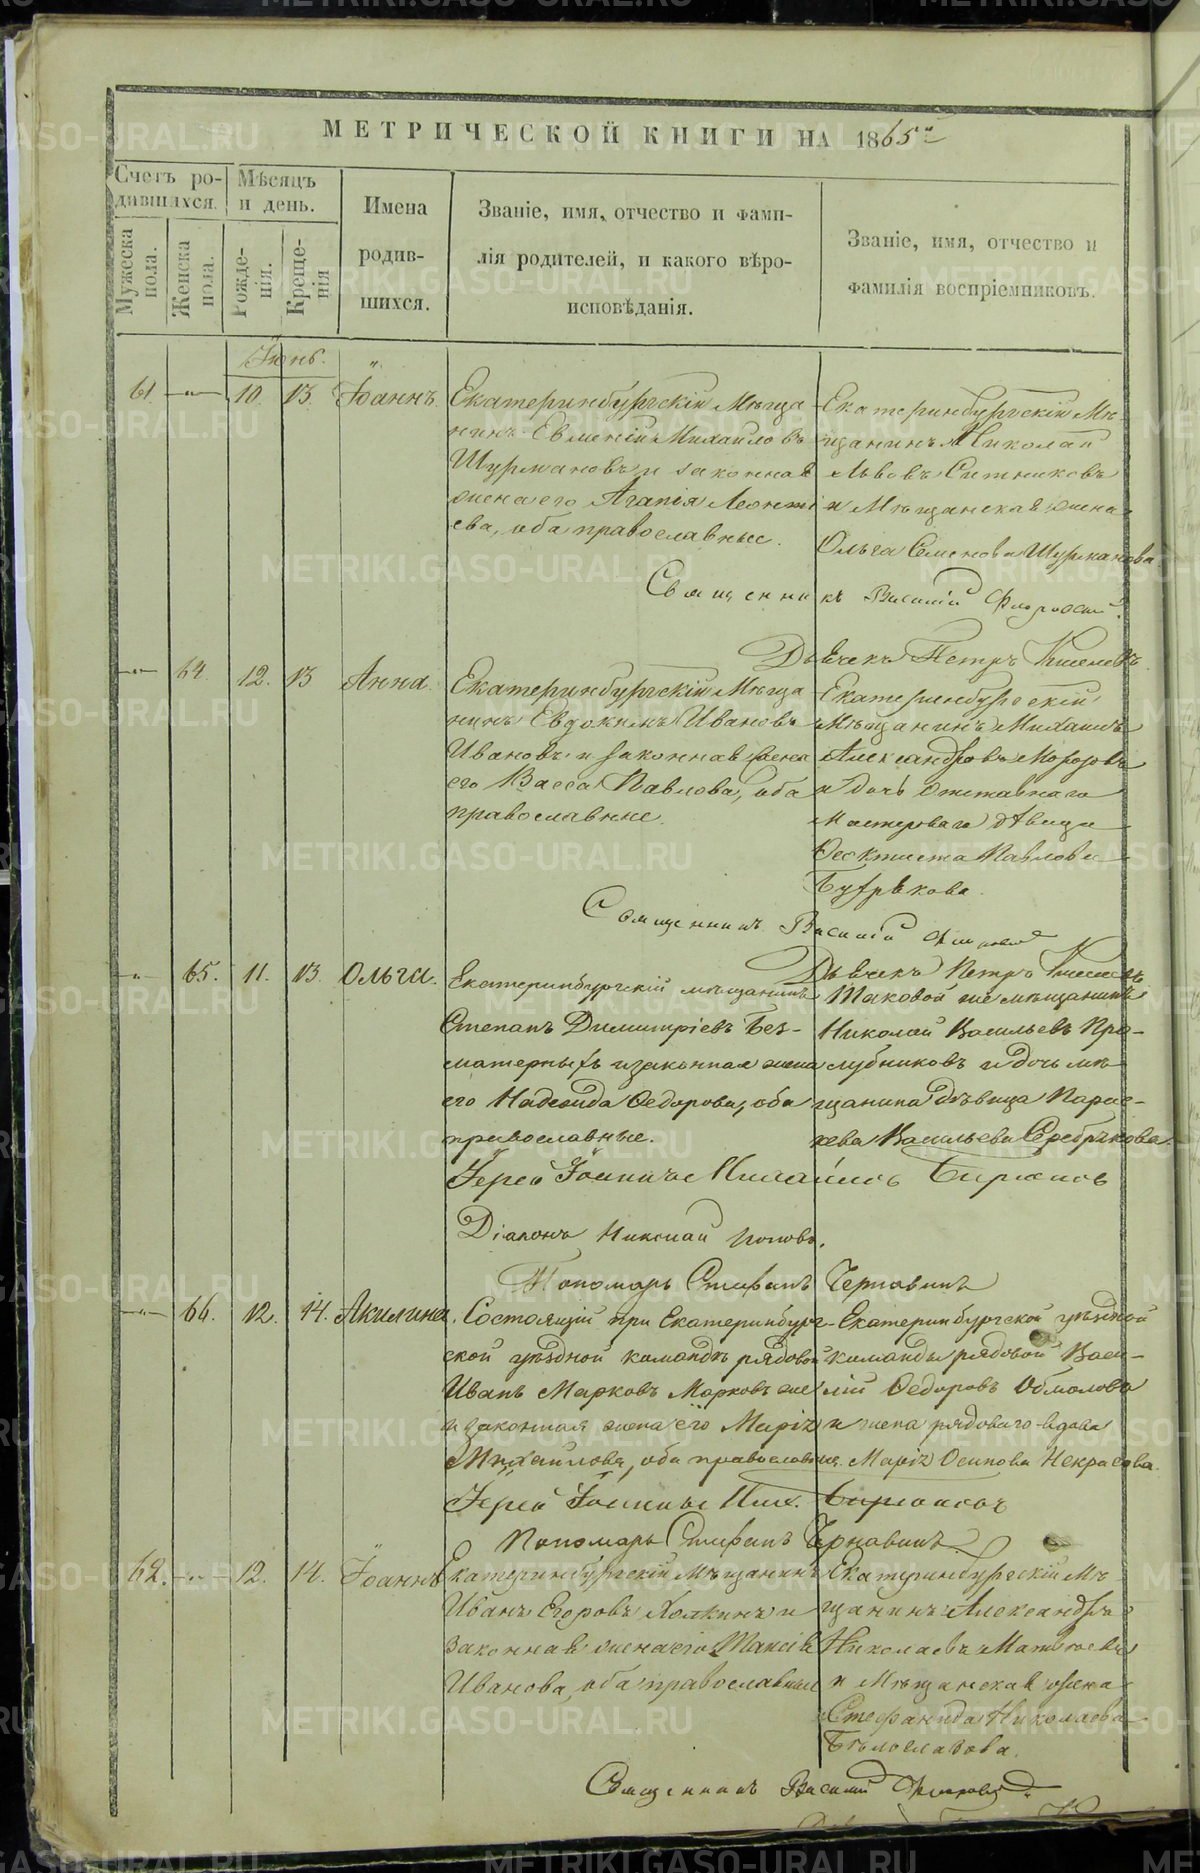 МЕТРИЧЕСКОЙ КНИГИ НА 1865й
Счетъ родившихся.
Мѣсяцъ и день.
Имена родившихся.
Званіе, имя, отчество и фамилія родителей, и какого вѣроисповѣданія.
Званіе, имя, отчество и фамилія воспріемниковъ.
Мужеска пола.
Женска пола.
Рожденія.
Крещенія
Іюнь.
61. —"— 10. 13. Іоаннъ.
Екатеринбургскій Мѣща
нинъ Евменій Михайловъ
Шурмановъ и законная
жена его Агапія Леонті
ева, оба православные.
Екатеринбургскій Мѣ-
щанинъ Николай
Львовъ Ситниковъ
и Мѣщанская жена
Ольга Семенова Шурманова
Священникъ Василій
Дьячекъ Петръ
—"— 64. 12. 13 Анна.
Екатеринбургскій Мѣща
нинъ Евдокимъ Ивановъ
Ивановъ и законная жена
его Васса Павлова, оба
православные.
Екатеринбургскій
Мѣщанинъ Михаилъ
Александровъ Морозовъ
и дочь отставнаго
Мастероваго дѣвица
Феоктиста Павлова
Священникъ Василій
Дьячекъ Петръ
—"— 65. 11. 13. Ольга.
Екатеринбургскій мѣщанинъ
Степанъ Димитріевъ Без-
матерныхъ и законная жена
его Надежда Федорова, оба
православные.
Таковой же мѣщанинъ
Николай Васильевъ Про-
лубниковъ и дочь мѣ-
щанина дѣвица Парас-
кева Васильева Серебрякова.
Іерей Іоаннъ Михайловъ Бирюковъ
Діаконъ Николай Поповъ.
Пономарь Стефанъ Чернавинъ
—"— 66. 12. 14. Акилина.
Состоящій при Екатеринбург-
ской уѣздной командѣ рядовой
Иванъ Марковъ Марковъ же
и законная жена его Марія
Михайлова, оба православные.
Екатеринбургской уѣздной
команды рядовой Васи-
лій Федоровъ Обмолово
и жена рядоваго вдова
Марія Осипова Некрасова.
Іерей Іоаннъ Мих. Бирюковъ
Пономарь Стефанъ Чернавинъ.
62. —"— 12. 14. Іоаннъ
Екатеринбургскій Мѣщанинъ
Иванъ Егоровъ Холкинъ и
законная жена его Таисія
Иванова, оба православные
Екатеринбургскій Мѣ-
щанинъ Александръ
Николаевъ Матвѣевъ
и Мѣщанская жена
Стефанида Николаева
Бѣлослатова.
Священникъ Василій
METRIKI.GASO-URAL.RU